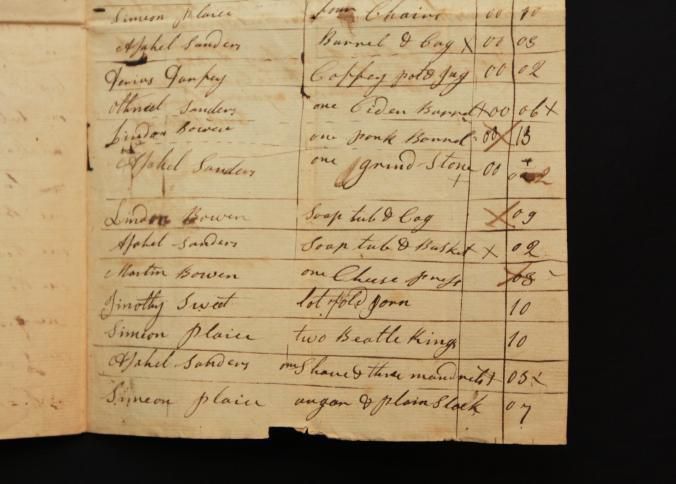 Simeon Plaice four Chairs 00 40
Asahel Sanders Barrel & Cag x 00 03
Coffey pot & Jug 00 02
Othniel Sanders one Cider Barrel x 00 06 x
Lindon Bowen one pork Barrel 00 13
Asahel Sanders one grind-Stone 00
Lindon Bowen Soap tub & Cag 09
Asahel Sanders Soap tub & Basket x 02
Martin Bowen one Cheese press 08
Timothy Sweet lot of old Iorn 10
Simeon Plaice two Beatle Rings 10
Asahel Sanders one Shave & three mandrels x 03 x
Simeon Plaice augar & plain Stock 07